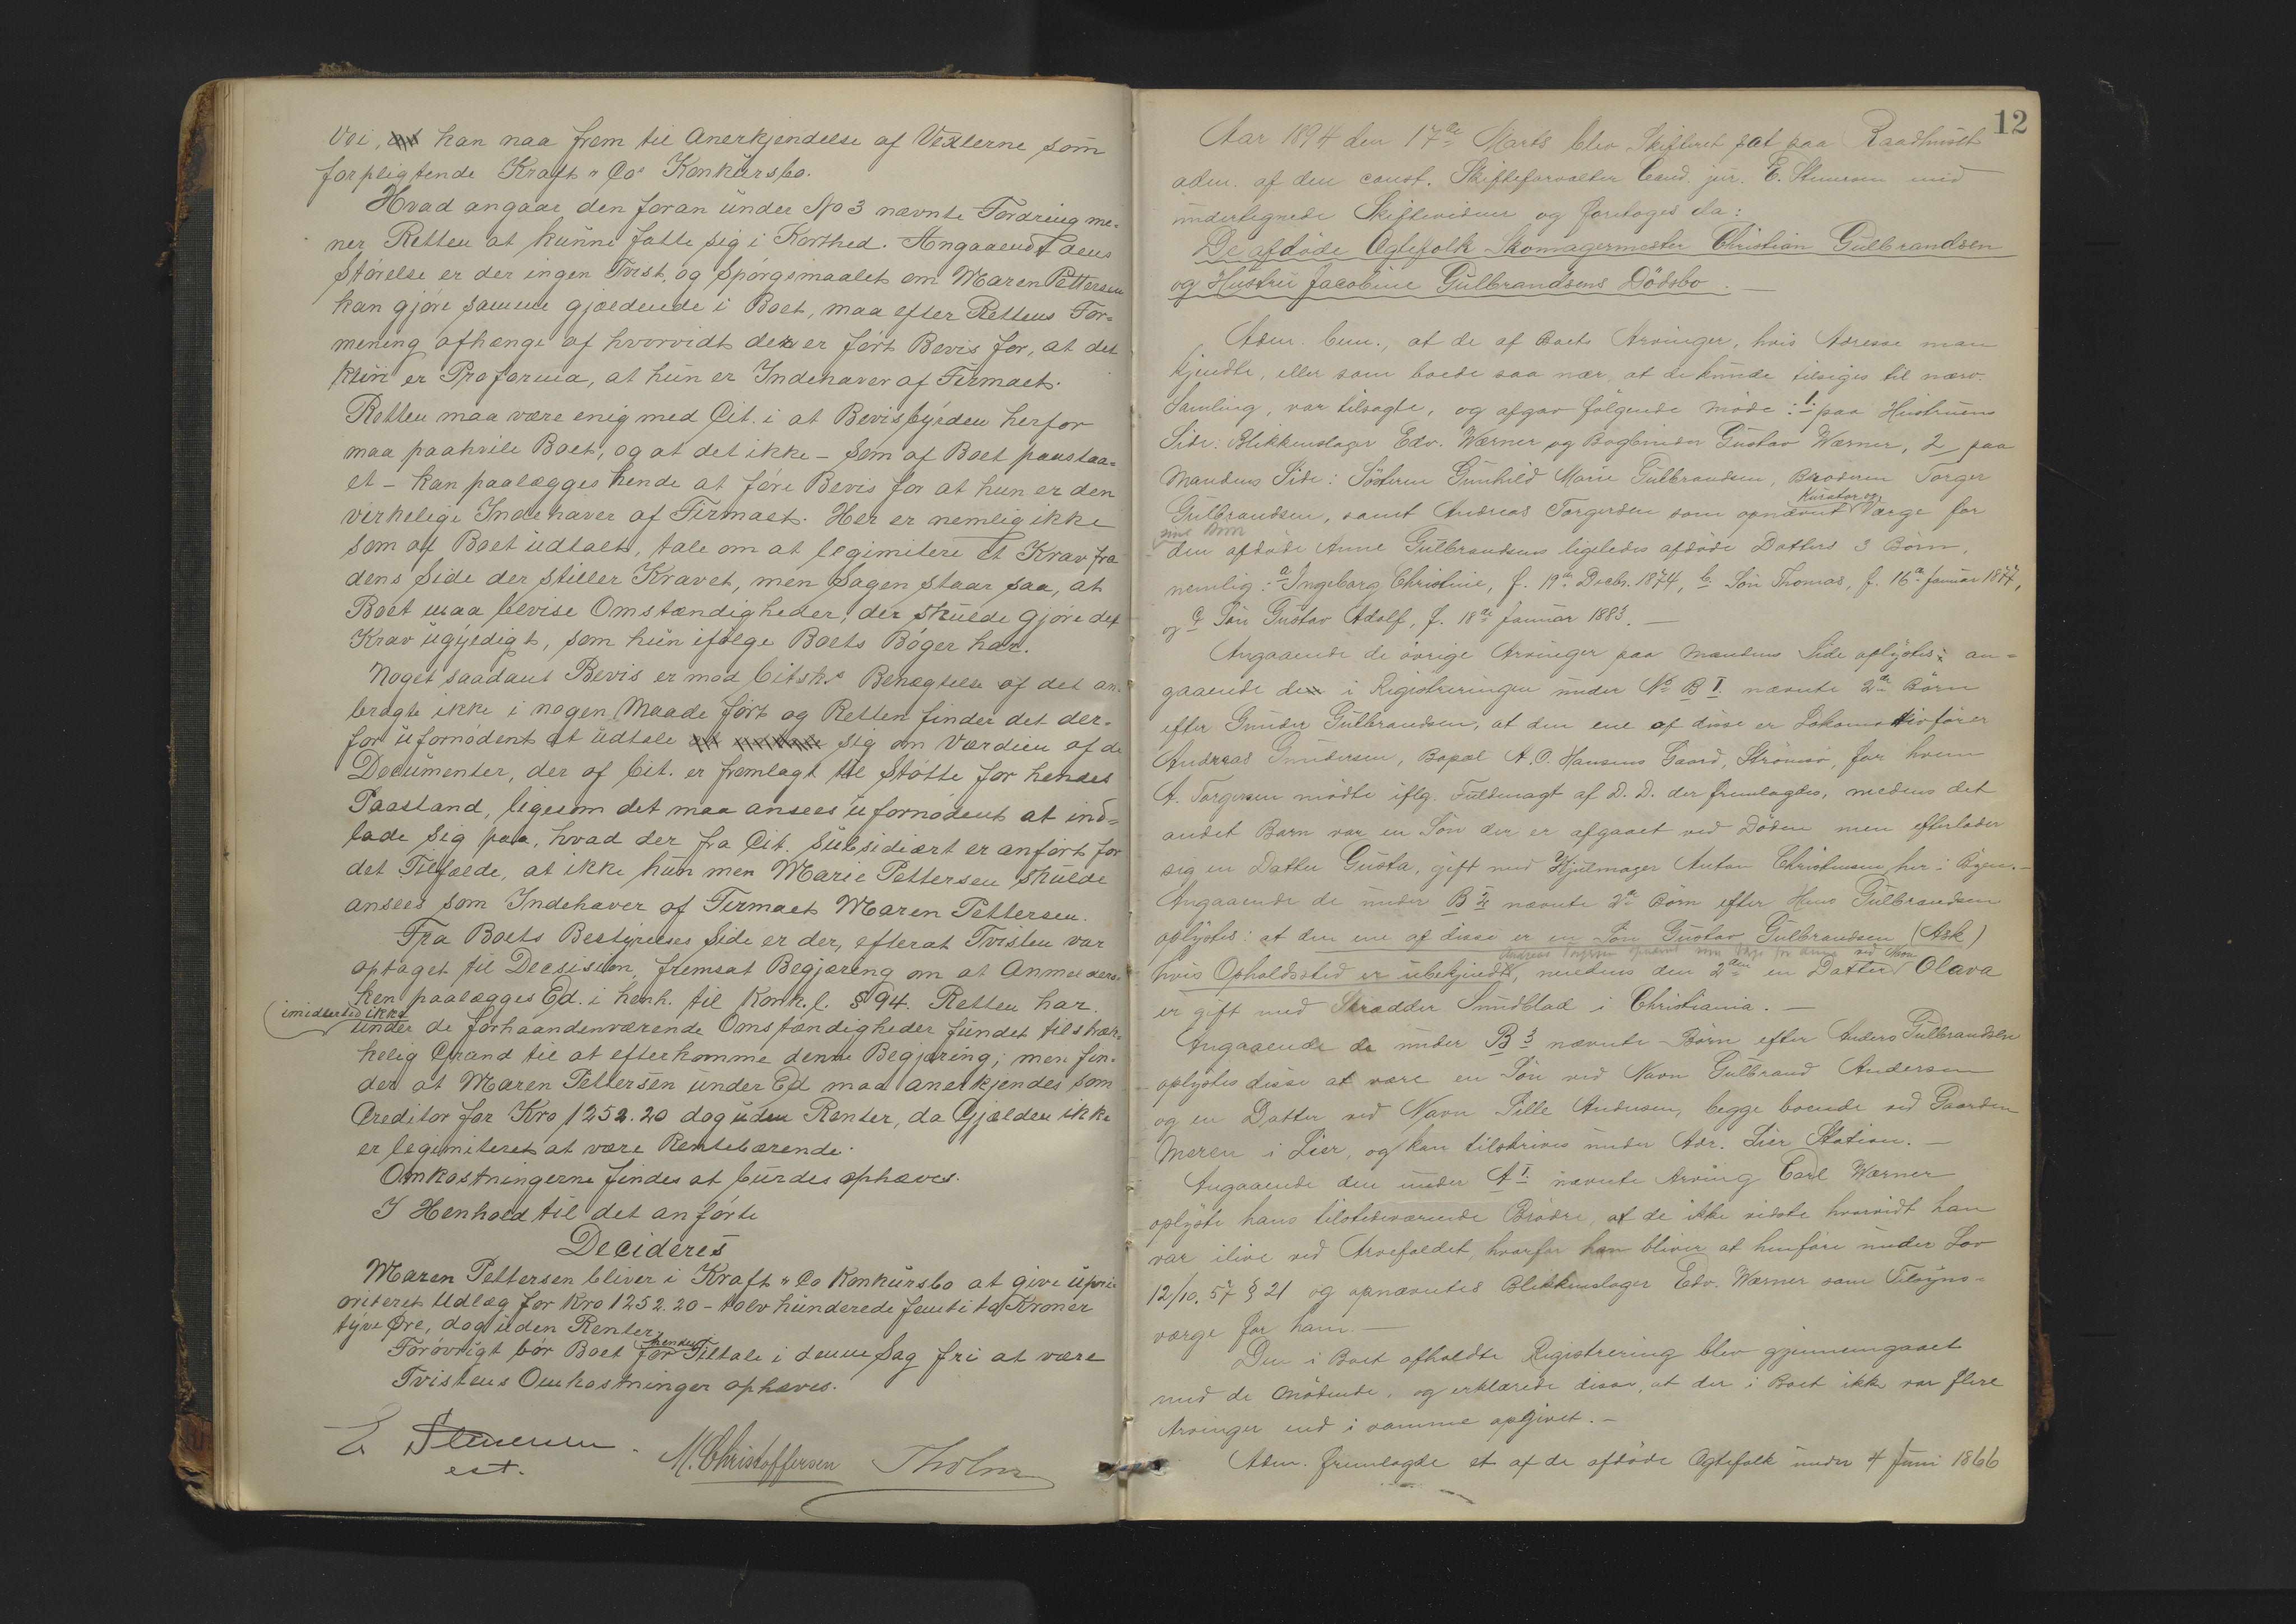 Vei, kan naa frem til Anerkjendelse af Vexlerne som
forpligtende Kraft & Cos Konkursbo.
Hvad angaar den foran under No 3 nævnte Fordring me-
ner Retten at kunne fatte sig i Korthed. Angaaendt dens
Störelse er der ingen Tvist, og Spörgsmaalet om Maren Pettersen
kan gjöre samme gjældende i Boet, maa efter Rettens For-
mening afhænge af hvorvidt der er fört Bevis for, at det
kun er Proforma, at hun er Indehaver af Firmaet.
Retten maa være enig med Cit. i at Bevisbyrden herfor
maa paahvile Boet, og at det ikke - som af Boet paastaa-
et - kan paalægges hende at före Bevis for at hun er den
virkelige Indehaver af Firmaet. Her er nemlig ikke
som af Boet udtalt, tale om at legimitere et Krav fra
dens Side der stiller Kravet, men Sagen staar saa, at
Boet maa bevise Omstændigheder, der skulde gjöre det
Krav ugyldigt, som hun ifölge Boets Böger har.
Noget saadant Bevis er mod Citsks Benægtelse af det an-
bragte ikke i nogen Maade fört og Retten finder det der-
for ufornödent at udtale sig om Værdien af de
Documenter, der af Cit. er fremlagt til Stötte for hendes
Paastand, ligesom det maa ansees ufornödent at ind-
lade sig paa, hvad der fra Cit. subsidiært er anfört for
det Tilfælde, at ikke hun men Marie Pettersen skulde
ansees som Indehaver af Firmaet Maren Pettersen.
Fra Boets Bestyrelses Side er der, efterat Tvisten var
optaget til Decision, fremsat Begjæring om at Anmelders-
ken paalægges Ed. i henh. til Konk.l. § 94. Retten har
imidlertid ikke
under de forhaandenværende Omstændigheder fundet tilstræk-
kelig Grund til at efterkomme denne Begjæring; men fin-
der at Maren Pettersen under Ed maa anerkjendes som
Creditor for Kro 1252.20 dog uden Renter, da Gjælden ikke
er legimiteret at være Rentebærende.
Omkostningerne findes at burdes ophæves.
I Henhold til det anförte
Decideres
Maren Pettersen bliver i Kraft & Co Konkursbo at give upri-
oriteret Udlæg for Kro 1252.20 - tolv hunderede femti to Kroner
tyve Öre, dog uden Renter.
hendes
Forövrigt bör Boet for Tiltale i denne Sag fri at være
Tvistens Omkostninger ophæves.
E Stenersen.
cst.
M. Christoffersen
12
Aar 1894 den 17de Marts blev Skifteret sat paa Raadhuset
adm. af den const. Skifteforvalter Cand. jur. E. Stenersen med
undertegnede Skiftevidner og foretoges da:
De afdöde Ægtefolk Skomagermester Christian Gulbrandsen
og Hustru Jacobine Gulbrandsens Dödsbo.
Adm. bem., at de af Boets Arvinger, hvis Adresse man
kjendte, eller som boede saa nær at de kunde tilsiges til nærv.
Samling, var tilsagte, og afgav fölgende möde: 1. paa Hustruens
Side: Blikkenslager Edv. Wærner og Bogbinder Gustav Wærner, 2 paa
Mandens Side: Sösteren Gunhild Marie Gulbrandsen, Broderen Torger
Kurator og
Gulbrandsen, samt Andreas Torgersen som opnævnt Værge for
sine Börn
den afdöde Anne Gulbrandsens ligeledes afdöde Datters 3 Börn,
nemlig: a Ingeborg Christine, f. 19de Decbr. 1874, b. Sön Thomas, f. 16de Januar 1877,
og c Sön Gustav Adolf, f. 18de Januar 1883.
Angaaende de övrige Arvinger paa Mandens Side oplystes: an-
gaaende de i Registreringen under No B I nævnte 2de Börn
efter Gunder Gulbrandsen, at den ene af disse er Lokomotivförer
Andreas Gundersen, Bopæl A. O. Hansens Gaard, Strömsö, for hvem
A. Torgersen mödte iflg. Fuldmagt af D. D. der fremlagdes, medens det
andet Barn var en Sön der er afgaaet ved Döden men efterlader
sig en Datter Gusta, gift med Hjulmager Anton Christensen her i Byen.
Angaaende de under B 2 nævnte 2de Börn efter Hans Gulbrandsen
oplystes: at den ene af disse er en Sön Gustav Gulbrandsen (Ask)
Andreas Torgersen opnævnt som Værge for denne ved Navn
hvis Opholdssted er ubekjendt, medens den 2den en Datter Olava
er gift med Skrædder Sundblad i Christiania.
Angaaende de under B 3 nævnte Börn efter Anders Gulbrandsen
oplystes disse at være en Sön ved Navn Gulbrand Andersen
og en Datter ved Navn Pille Andersen, begge boende ved Gaarden
Meren i Lier, og kan tilskrives under Adr. Lier Station.
Angaaende den under A I nævnte Arving Carl Wærner
oplyste hans tilstedeværende Brödre, at de ikke vidste hvorvidt han
var ilive ved Arvefaldet, hvorfor han bliver at henföre under Lov
12/10. 57 § 21 og opnævntes Blikkenslager Edv. Wærner som Tilsyns-
værge for ham.
Den i Boet afholdte Registrering blev gjennemgaaet
med de Mödende, og erklærede disse, at der i Boet ikke var flere
Arvinger end i samme opgivet.
Adm. fremlagde et af de afdöde Ægtefolk under 4 Juni 1866